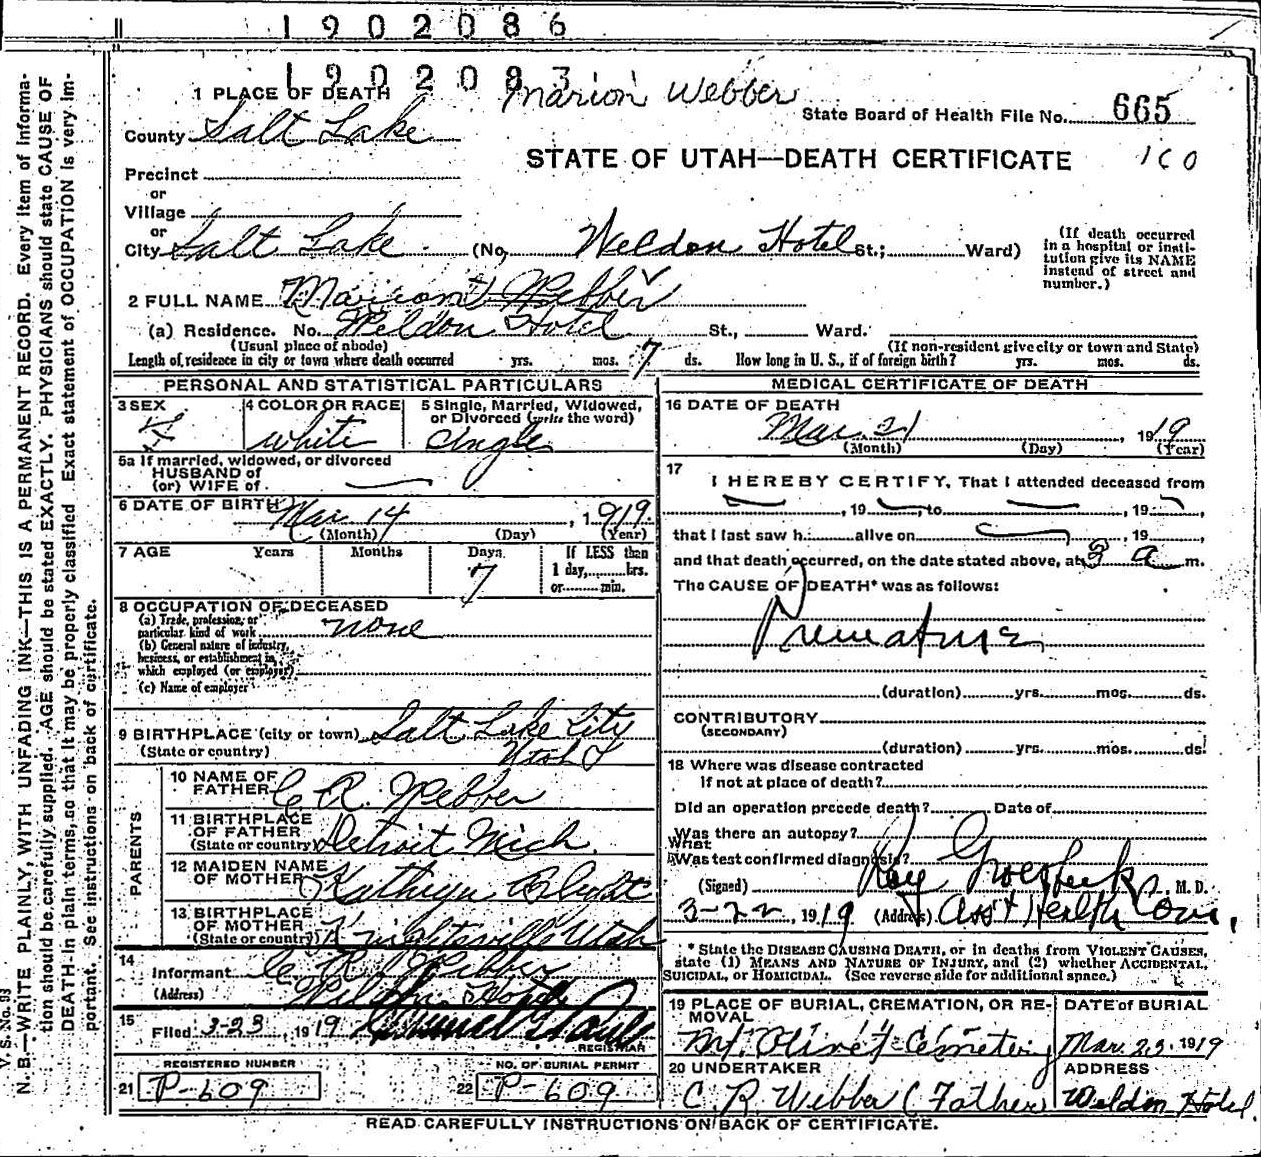 1902086
1902083
Marion Webber
1 PLACE OF DEATH
State Board of Health File No. 665
County Salt Lake
STATE OF UTAH—DEATH CERTIFICATE 160
Precinct
or
Village
or
City Salt Lake (No. Weldon Hotel St.; Ward)
(If death occurred
in a hospital or insti-
tution give its NAME
instead of street and
number.)
2 FULL NAME Marion Webber
(a) Residence. No. Weldon Hotel St., Ward.
(Usual place of abode) (If non-resident give city or town and State)
Length of residence in city or town where death occurred yrs. mos. 7 ds. How long in U. S., if of foreign birth? yrs. mos. ds.
PERSONAL AND STATISTICAL PARTICULARS
3 SEX F
4 COLOR OR RACE white
5 Single, Married, Widowed,
or Divorced (write the word)
single
5a If married, widowed, or divorced
HUSBAND of
(or) WIFE of
6 DATE OF BIRTH Mar 14, 1919.
(Month) (Day) (Year)
7 AGE Years Months Days If LESS than
7 1 day, hrs.
or min.
8 OCCUPATION OF DECEASED
(a) Trade, profession, or
particular kind of work none
(b) General nature of industry,
business, or establishment in
which employed (or employer)
(c) Name of employer
9 BIRTHPLACE (city or town) Salt Lake City
(State or country) Utah
PARENTS
10 NAME OF
FATHER C R. Webber
11 BIRTHPLACE
OF FATHER
(State or country) Detroit Mich.
12 MAIDEN NAME
OF MOTHER Kathryn
13 BIRTHPLACE
OF MOTHER
(State or country) Knightsville Utah
14
Informant C R Webber
(Address) Weldon Hotel
15
Filed 3-23, 1919
REGISTRAR
REGISTERED NUMBER
21 P-609
NO. OF BURIAL PERMIT
22 P-609
MEDICAL CERTIFICATE OF DEATH
16 DATE OF DEATH
Mar 21, 1919
(Month) (Day) (Year)
17
I HEREBY CERTIFY, That I attended deceased from
, 19 , to , 19 ,
that I last saw h. alive on , 19 ,
and that death occurred, on the date stated above, at 3 a m.
The CAUSE OF DEATH* was as follows:
Premature
(duration) yrs. mos. ds.
CONTRIBUTORY
(SECONDARY)
(duration) yrs. mos. ds.
18 Where was disease contracted
if not at place of death?
Did an operation precede death? Date of
Was there an autopsy?
What
Was test confirmed diagnosis?
(Signed) Roy Groesbeck, M. D.
3-22, 1919 (Address) Ass't Health Com.
* State the DISEASE CAUSING DEATH, or in deaths from VIOLENT CAUSES,
state (1) MEANS AND NATURE OF INJURY, and (2) whether ACCIDENTAL,
SUICIDAL, or HOMICIDAL. (See reverse side for additional space.)
19 PLACE OF BURIAL, CREMATION, OR RE-
MOVAL
Mt. Olivet Cemetery
DATE of BURIAL
Mar. 23, 1919
20 UNDERTAKER
C. R. Webber (Father)
ADDRESS
Weldon Hotel
READ CAREFULLY INSTRUCTIONS ON BACK OF CERTIFICATE.
V. S. No. 93
N. B.—WRITE PLAINLY, WITH UNFADING INK—THIS IS A PERMANENT RECORD. Every item of informa-
tion should be carefully supplied. AGE should be stated EXACTLY. PHYSICIANS should state CAUSE OF
DEATH in plain terms, so that it may be properly classified. Exact statement of OCCUPATION is very im-
portant. See instructions on back of certificate.